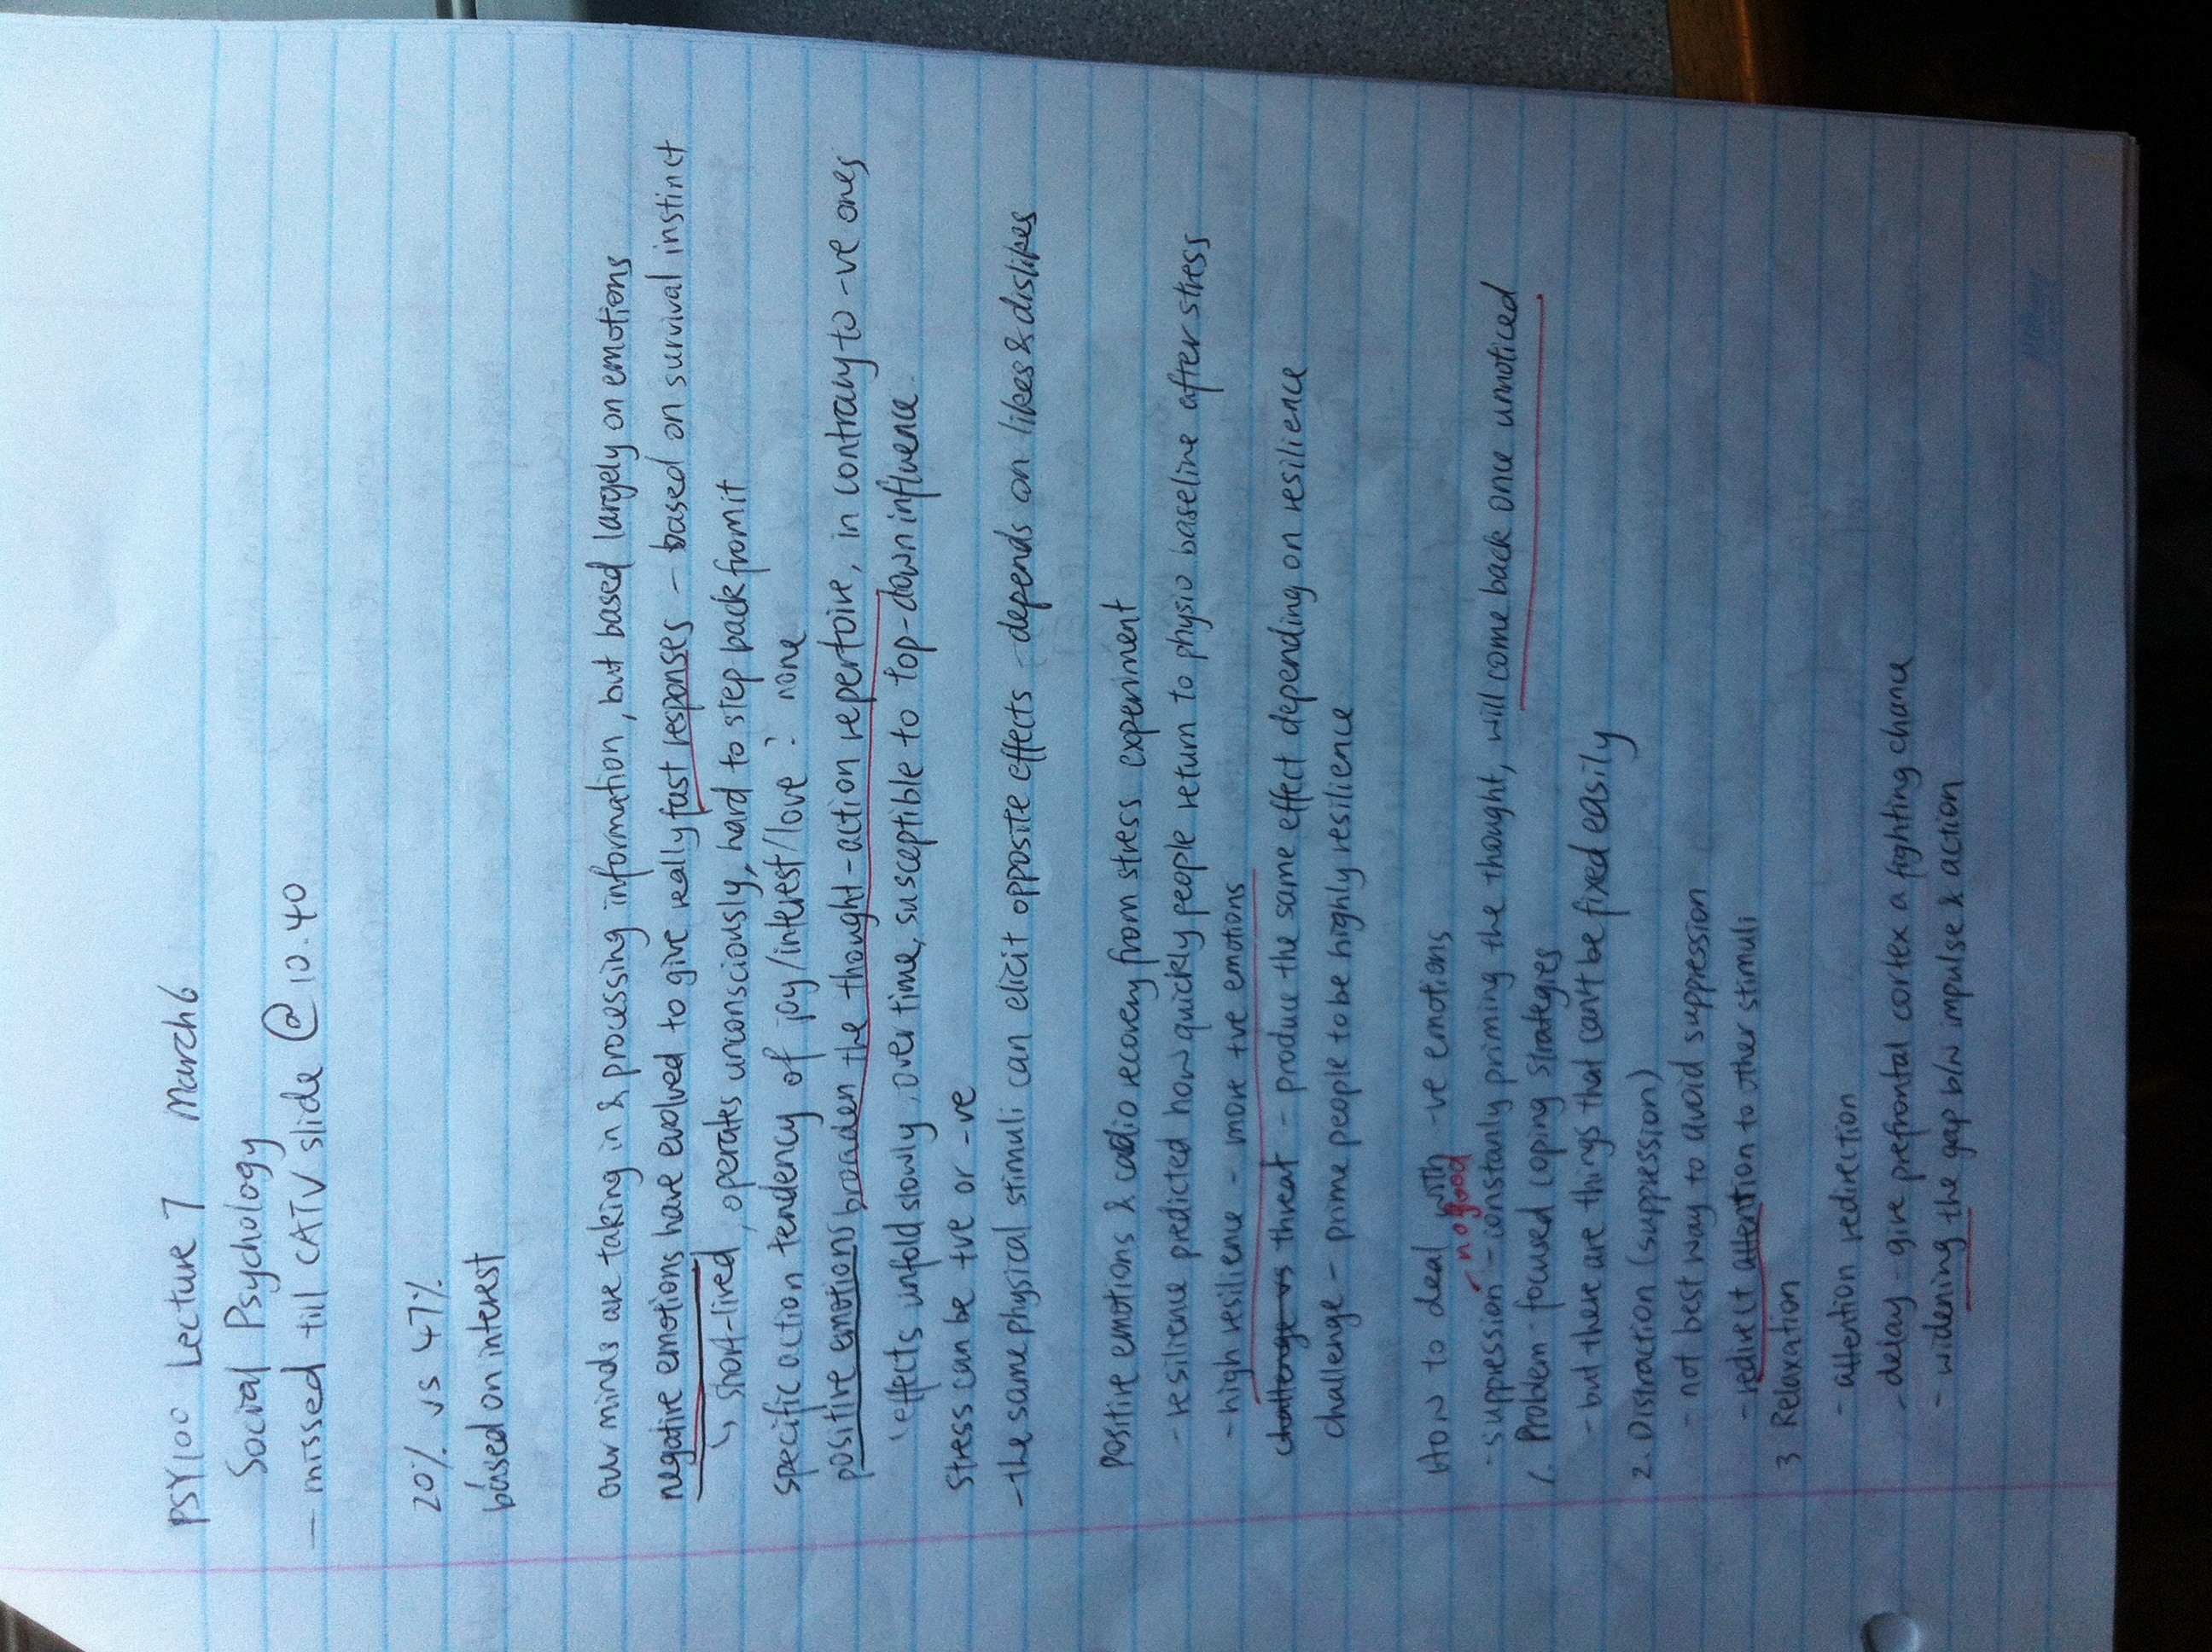 PSY100 Lecture 7 March 6
Social Psychology
- missed till CATV slide @ 10.40
20% vs 47%
based on interest
our minds are taking in & processing information, but based largely on emotions
negative emotions have evolved to give really fast responses - based on survival instinct
↳ short-lived, operates unconsciously, hard to step back from it
specific action tendency of joy/interest/love? none
positive emotions broaden the thought-action repertoire, in contrary to -ve ones
effects unfold slowly, over time, susceptible to top-down influence.
stress can be +ve or -ve
- the same physical stimuli can elicit opposite effects - depends on likes & dislikes
Positive emotions & cadio recovery from stress experiment
- resilience predicted how quickly people return to physio baseline after stress
- high resilience - more +ve emotions
challenge vs threat - produce the same effect depending on resilience
challenge - prime people to be highly resilience
HOW to deal with -ve emotions
- no good
- suppression - constantly priming the thought, will come back once unnoticed
1. Problem-focused coping strategies
- but there are things that can't be fixed easily
2. Distraction (suppression)
- not best way to avoid suppression
- redirect attention to other stimuli
3 Relaxation
- attention redirection
- delay - give prefrontal cortex a fighting chance
- widening the gap b/w impulse & action